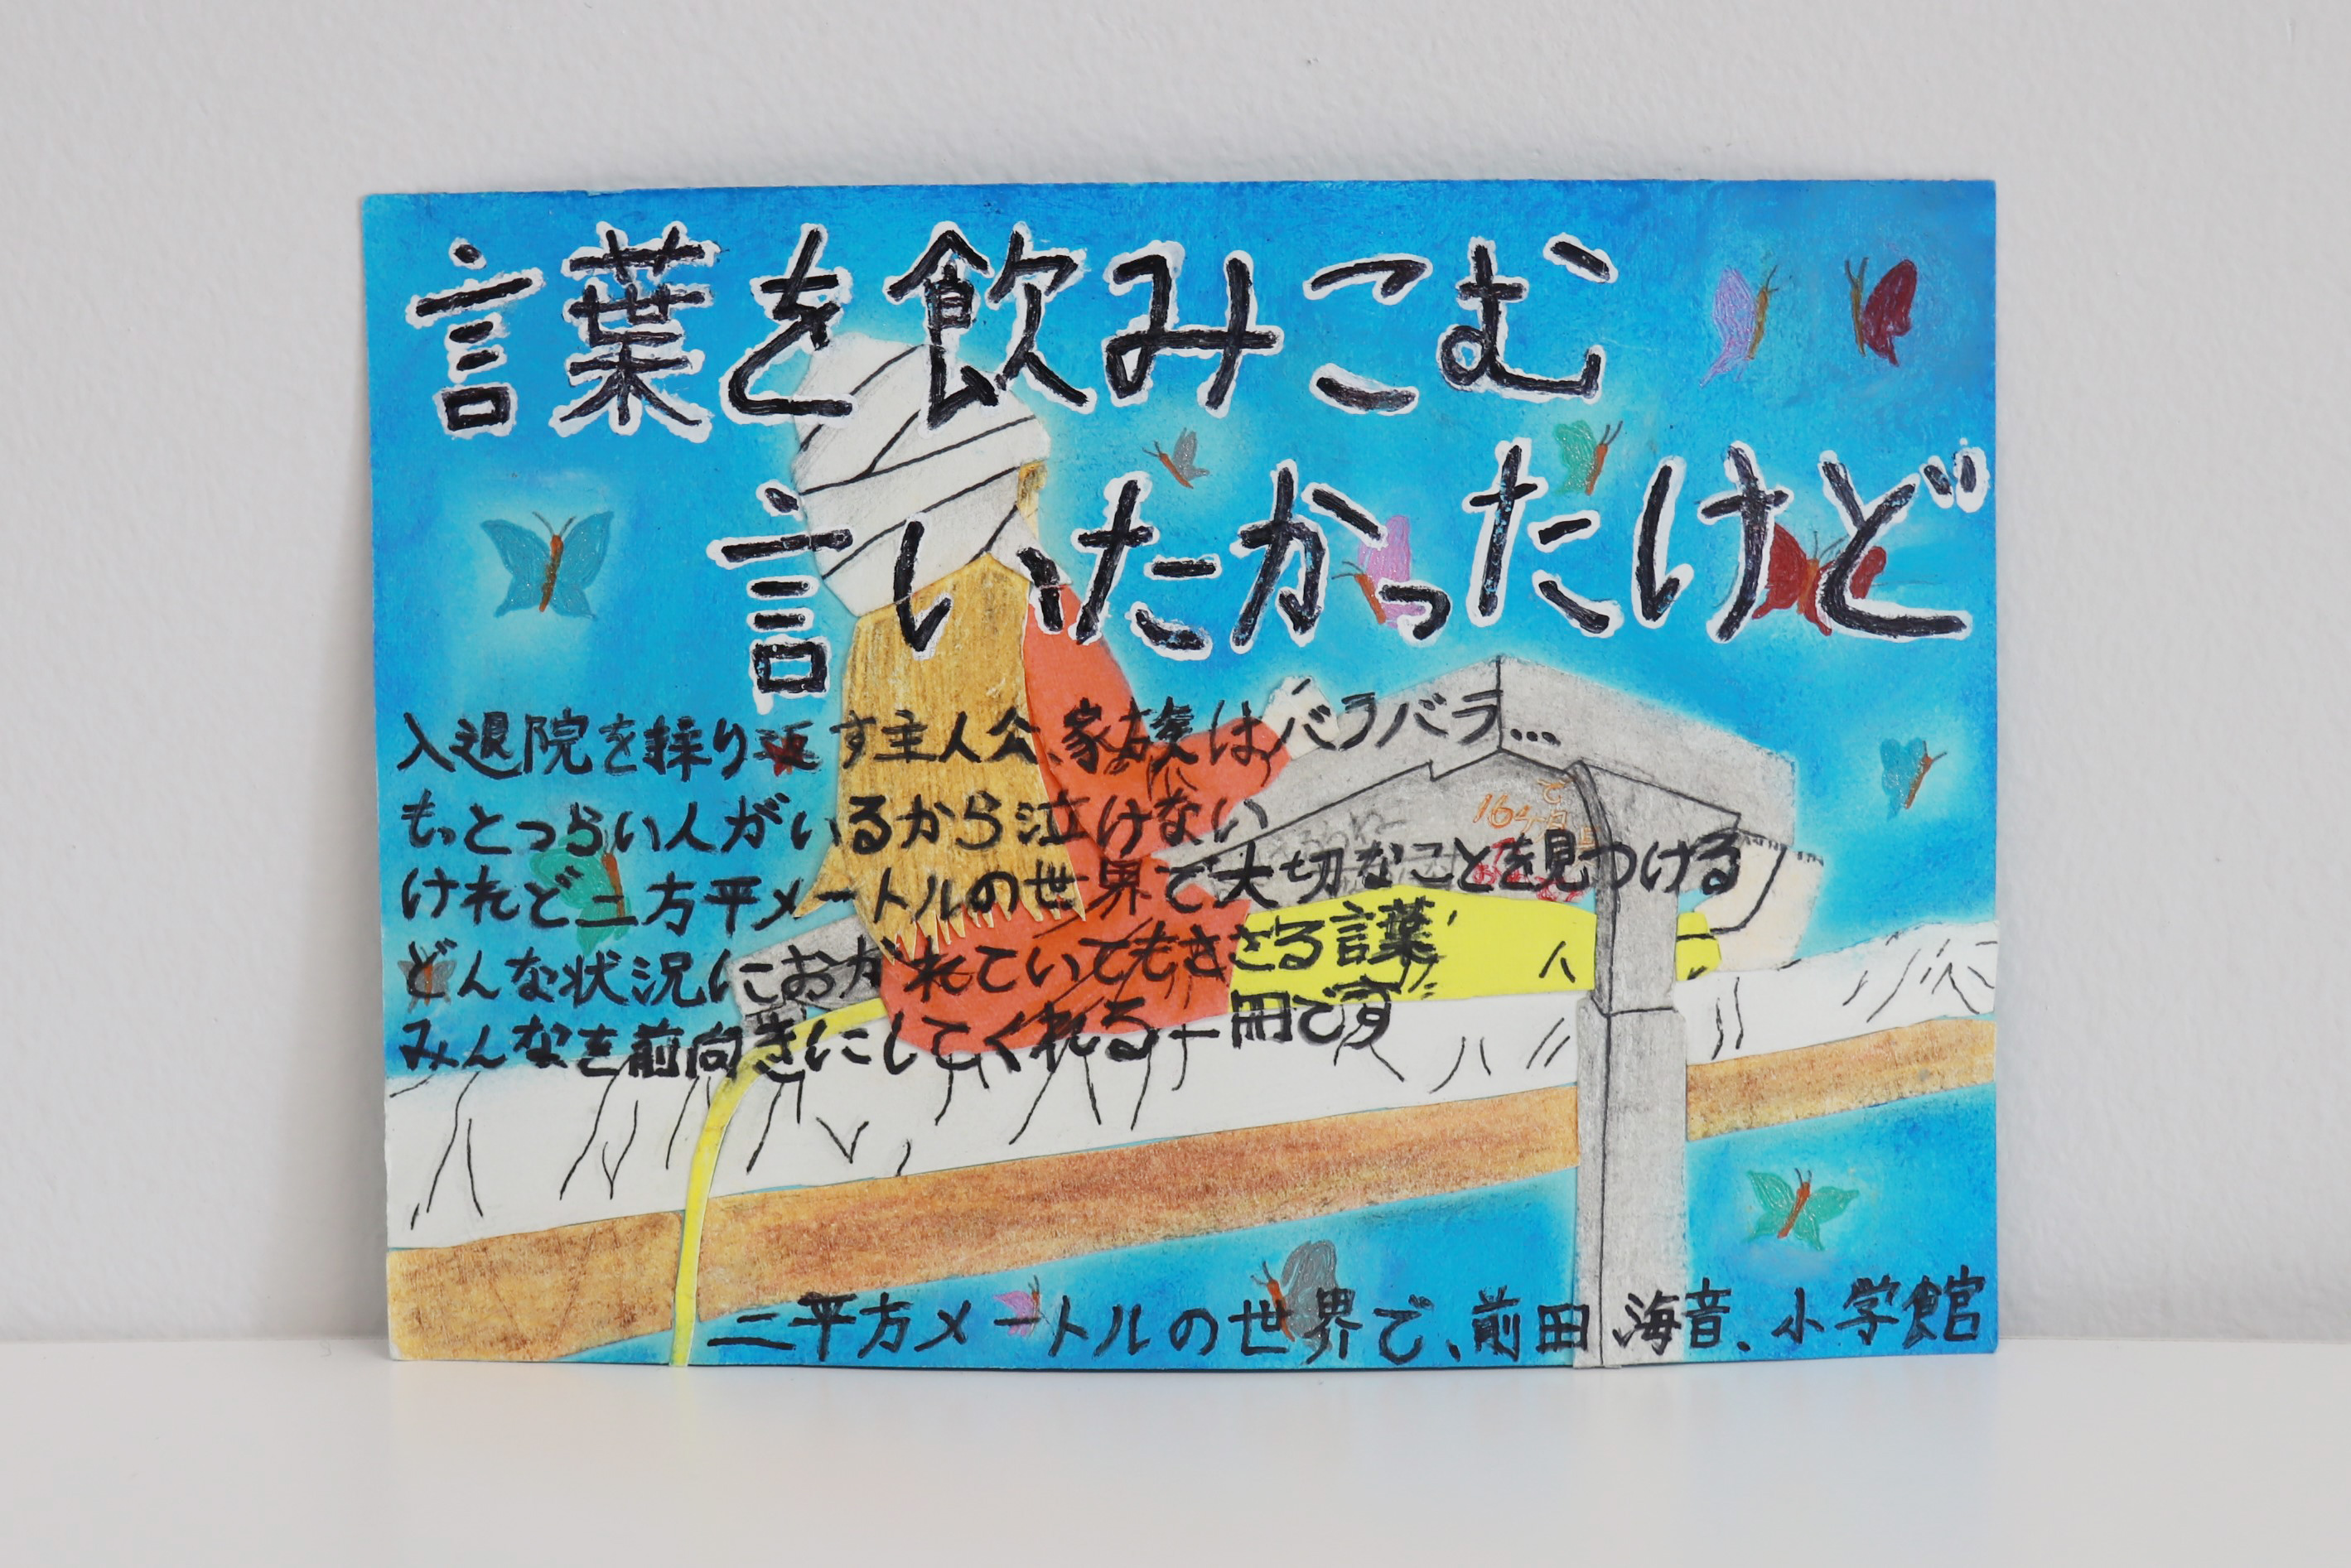 言葉を飲みこむ
言いたかったけど
入退院を採り返す主人公、家族はバラバラ…
もっとつらい人がいるから泣けない
けれど二方平メートルの世界で大切なことを見つける
どんな状況におかれていてもささる言葉
みんなを前向きにしてくれる一冊です
二平方メートルの世界で、前田 海音、小学館